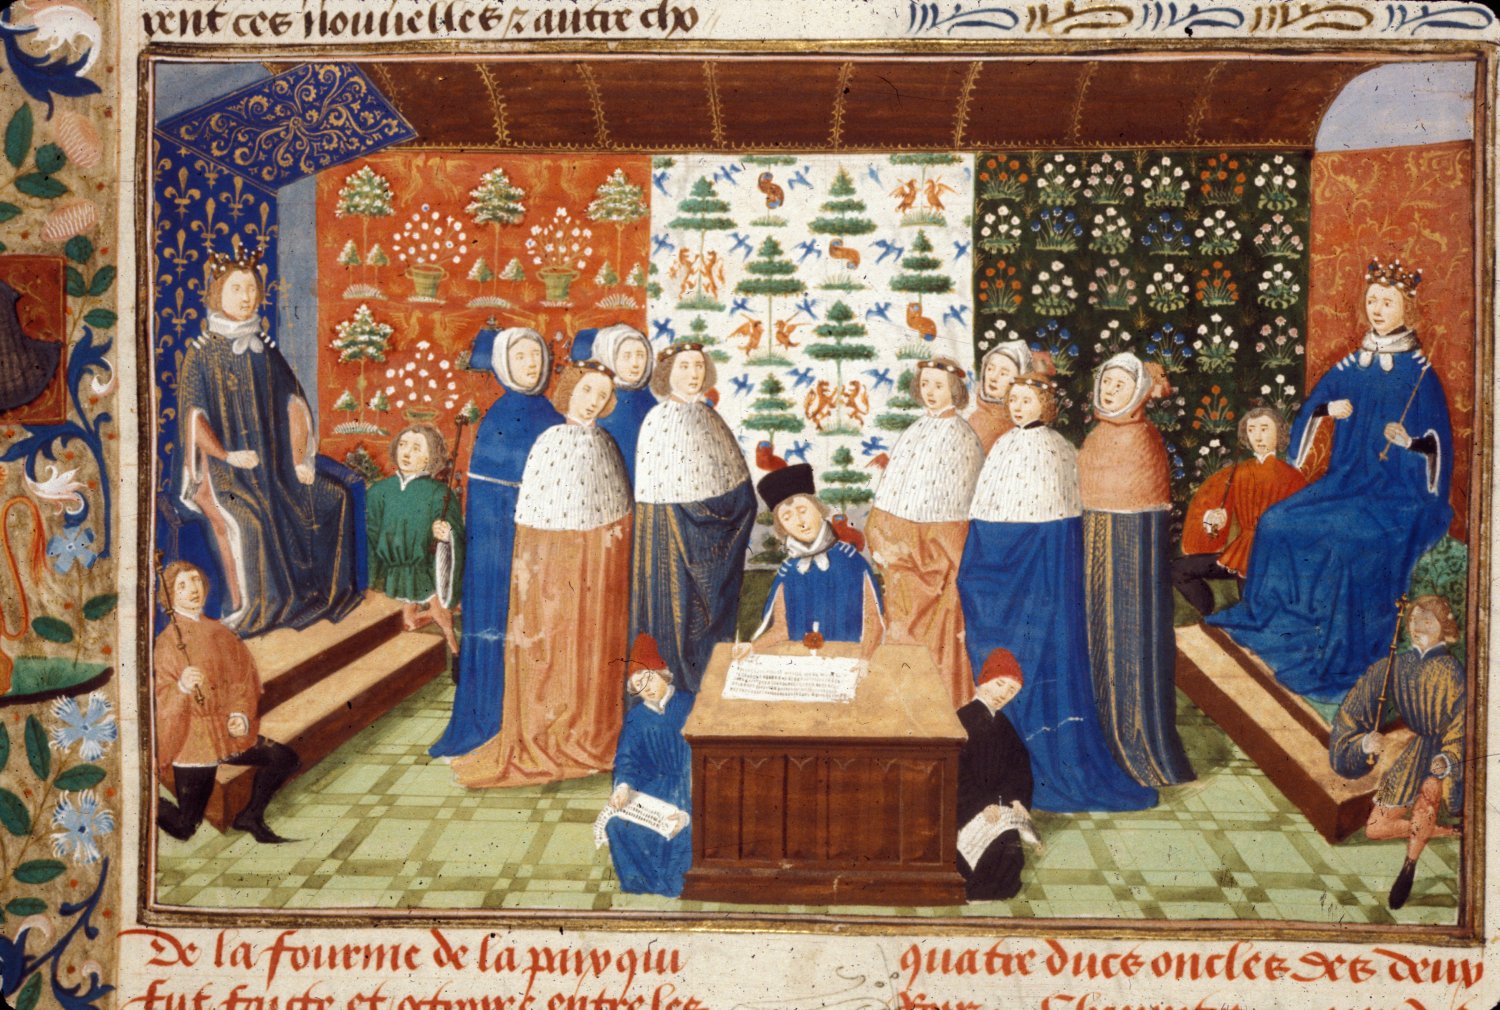 rent ces nouuelles & autre cho
De la fourme de la paix qui
fut faicte et
entre les
quatre ducs oncles des deux